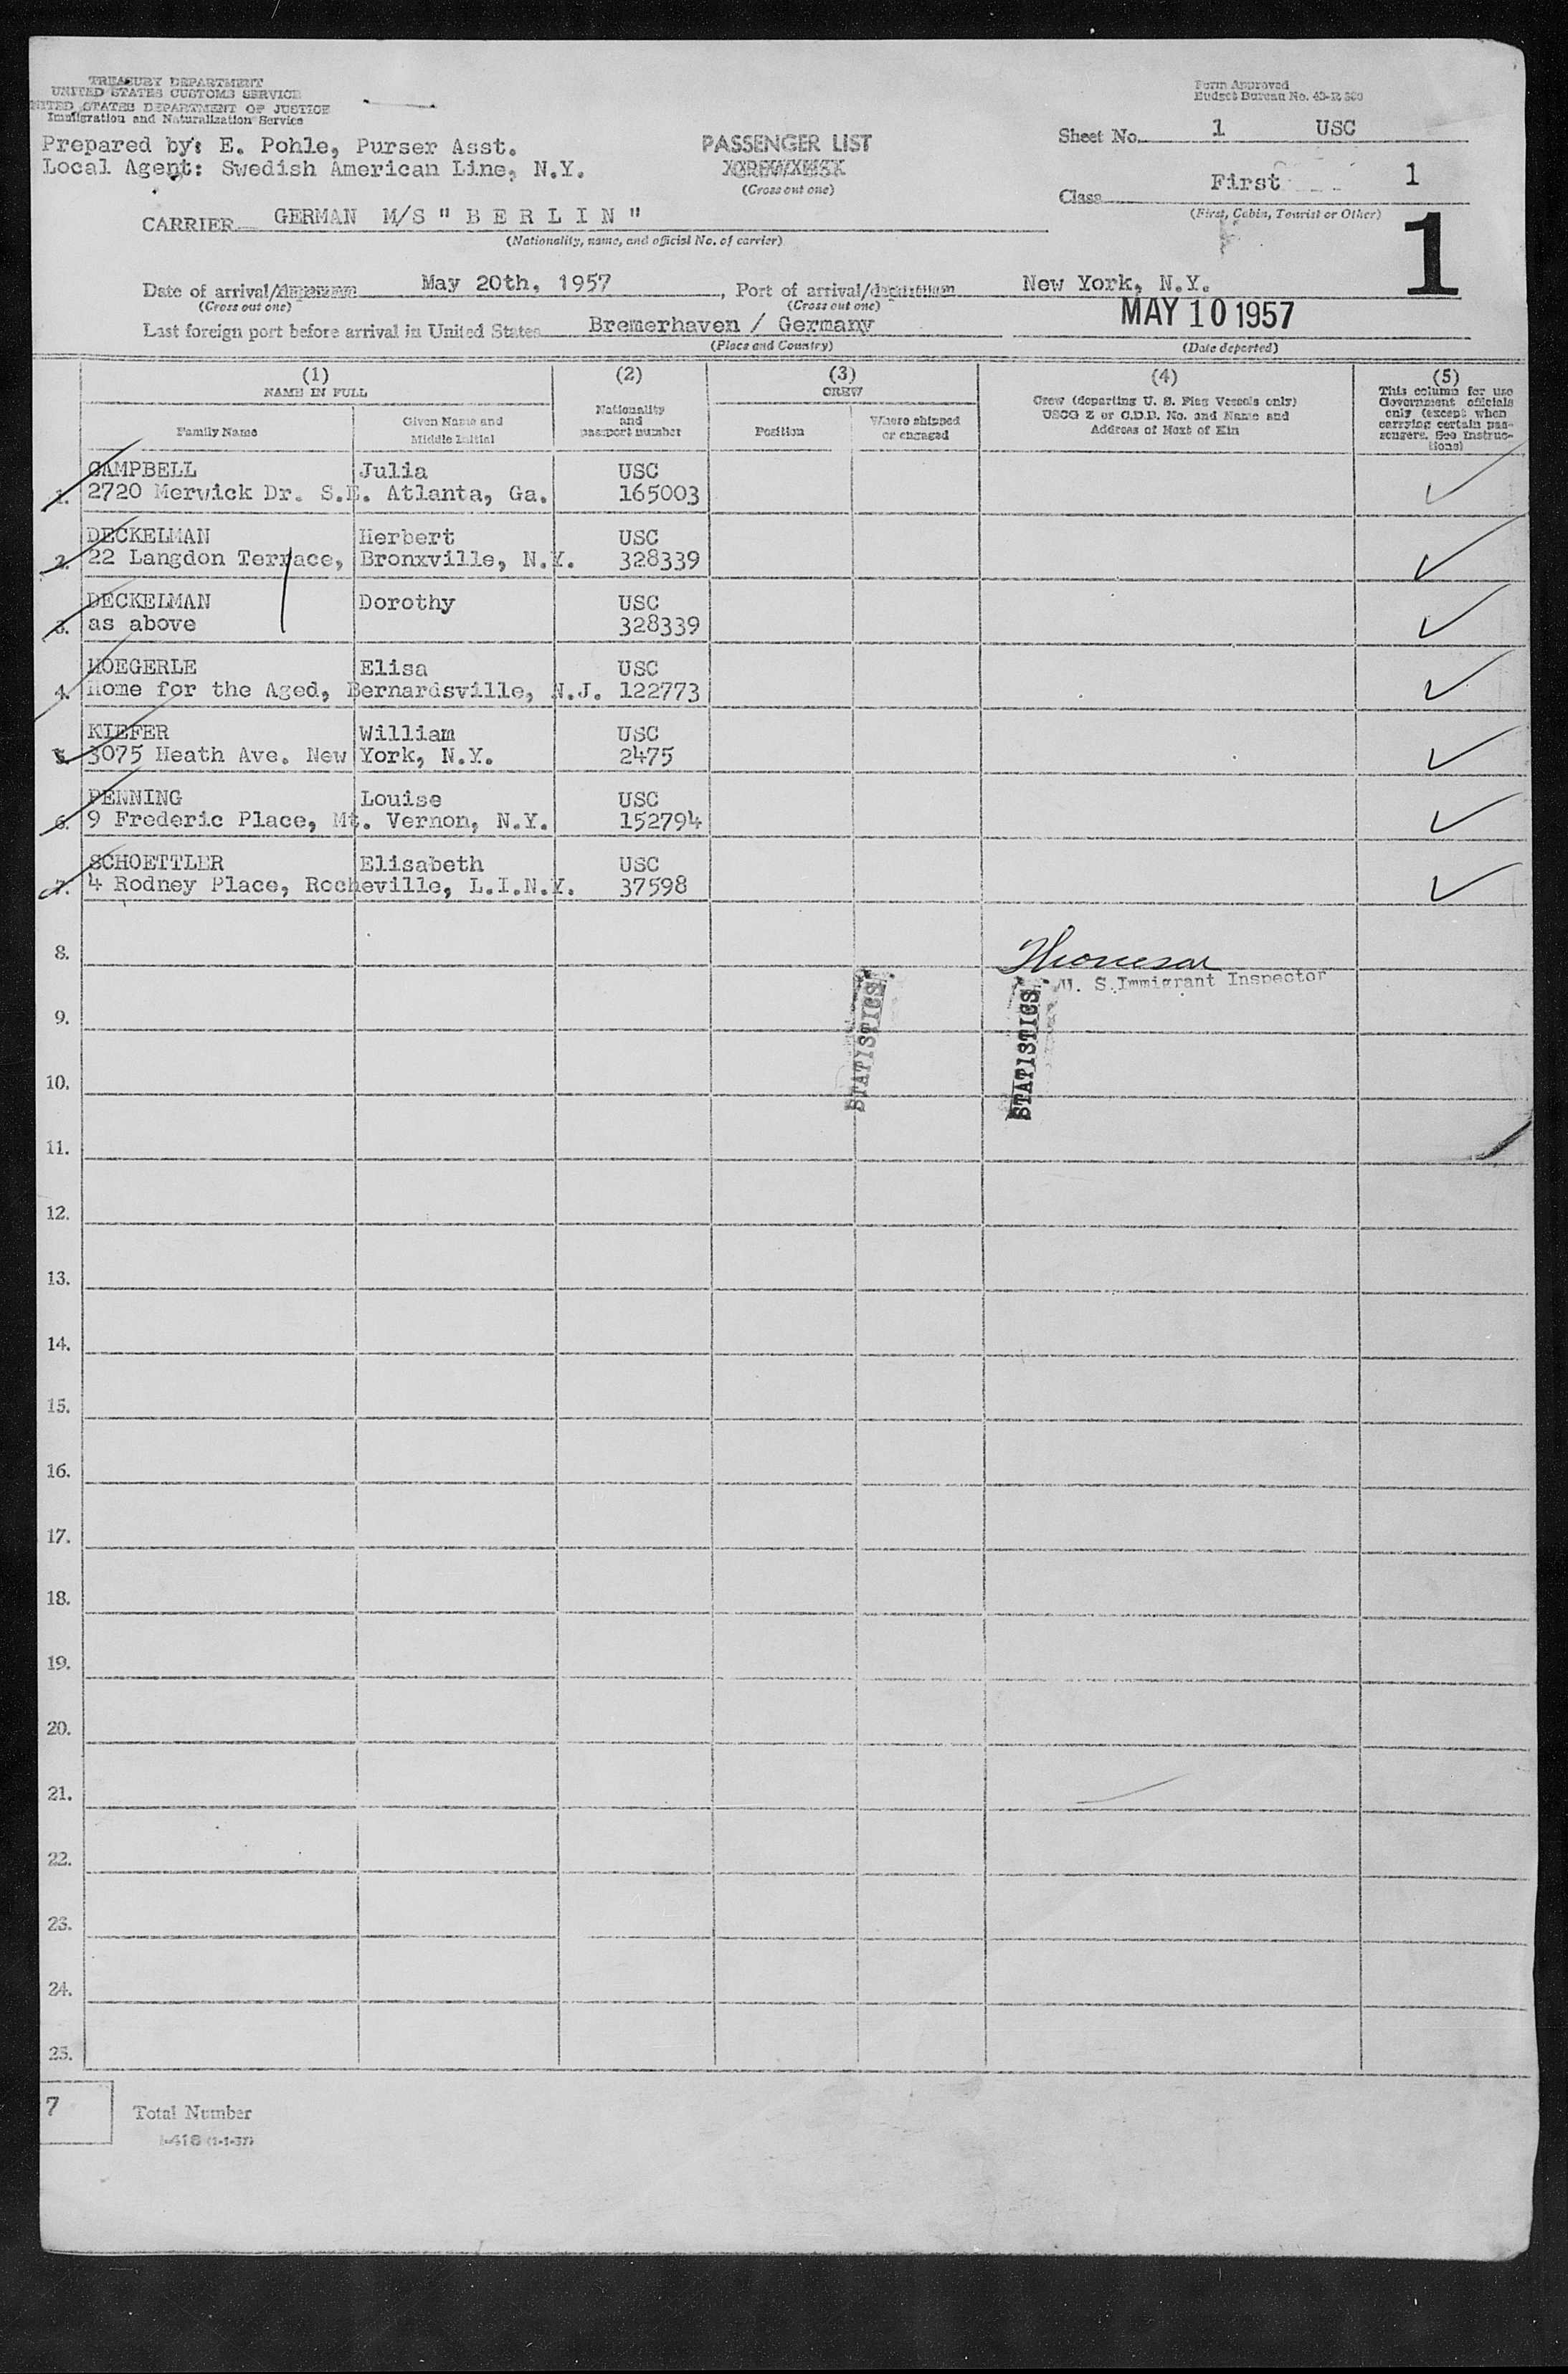 TREASURY DEPARTMENT
UNITED STATES CUSTOMS SERVICE
UNITED STATES DEPARTMENT OF JUSTICE
Immigration and Naturalization Service
Form Approved
Budget Bureau No.
Prepared by: E. Pohle, Purser Asst.
Local Agent: Swedish American Line, N.Y.
PASSENGER LIST
(Cross out one)
Sheet No. 1 USC
Class First 1
(First, Cabin, Tourist or Other)
1
CARRIER GERMAN M/S " B E R L I N "
(Nationality, name, and official No. of carrier)
Date of arrival/departure May 20th, 1957, Port of arrival/departure New York, N.Y.
(Cross out one) (Cross out one)
MAY 10 1957
Last foreign port before arrival in United States Bremerhaven / Germany
(Place and Country) (Date departed)
(1) (2) (3) (4) (5)
NAME IN FULL
Family Name
Given Name and Middle Initial
Nationality and passport number
CREW
Position
Where shipped or engaged
Crew (departing U. S. Flag Vessels only)
USCG Z or C.D.B. No. and Name and
Address of Next of Kin
This column for use
Government officials
only (except when
carrying certain pas-
sengers. See Instruc-
tions)
1. CAMPBELL Julia USC
2720 Merwick Dr. S.E. Atlanta, Ga. 165003
2. DECKELMAN Herbert USC
22 Langdon Terrace, Bronxville, N.Y. 328339
3. DECKELMAN Dorothy USC
as above 328339
4. HOEGERLE Elisa USC
Home for the Aged, Bernardsville, N.J. 122773
5. KIEFER William USC
3075 Heath Ave. New York, N.Y. 2475
6. PENNING Louise USC
9 Frederic Place, Mt. Vernon, N.Y. 152794
7. SCHOETTLER Elisabeth USC
4 Rodney Place, Rocheville, L.I.N.Y. 37598
8.
Thomson
U. S. Immigrant Inspector
STATISTICS
STATISTICS
9.
10.
11.
12.
13.
14.
15.
16.
17.
18.
19.
20.
21.
22.
23.
24.
25.
7 Total Number
I-418 (1-1-57)